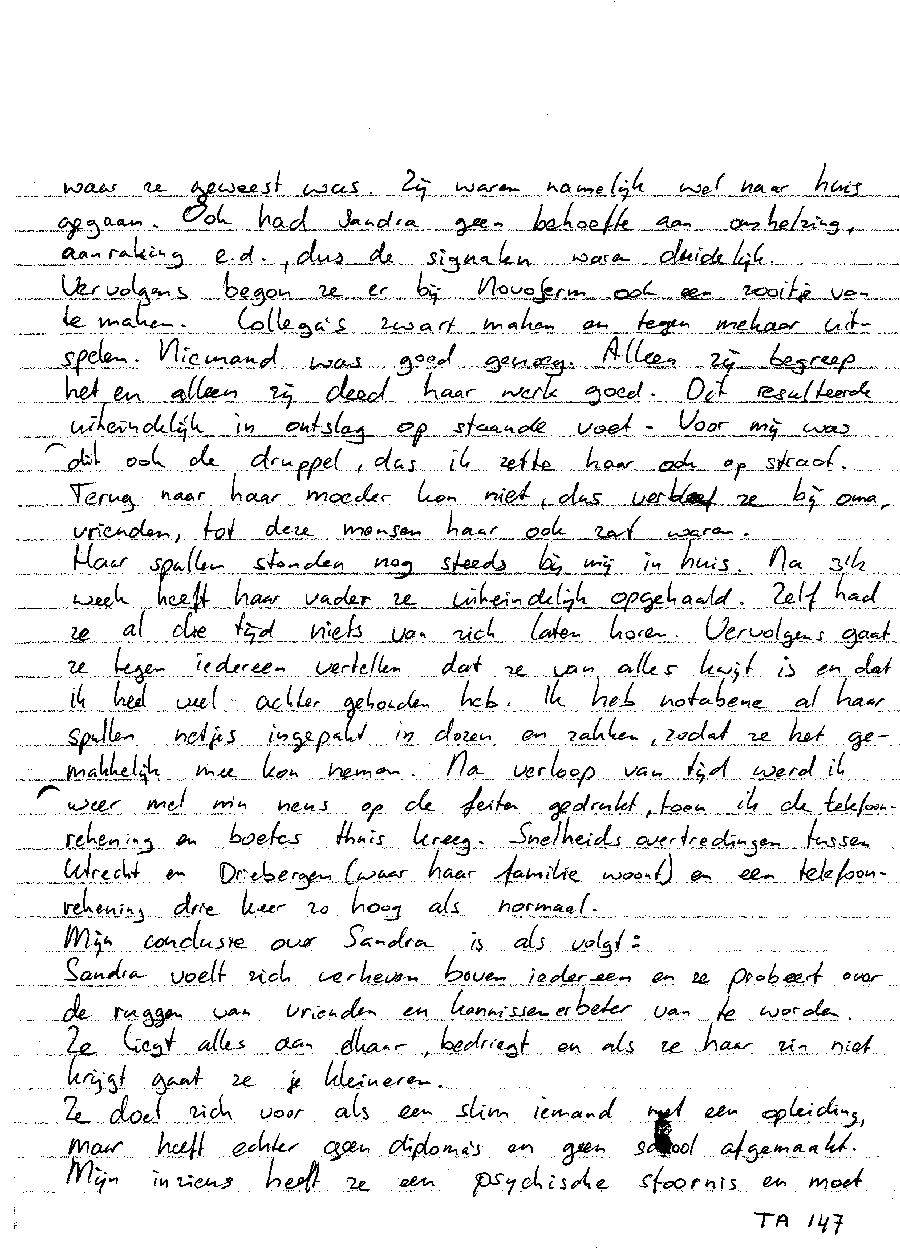 waar ze geweest was. Zij waren namelijk wel naar huis
gegaan. Ook had Sandra geen behoefte aan omhelzing,
aanraking e.d., dus de signalen waren duidelijk.
Vervolgens begon ze er bij Novoferm ook een zooitje van
te maken. Collega's zwart maken en tegen mekaar uit-
spelen. Niemand was goed genoeg. Alleen zij begreep
het en alleen zij deed haar werk goed. Dit resulteerde
uiteindelijk in ontslag op staande voet. Voor mij was
dit ook de druppel, dus ik zette haar ook op straat.
Terug naar haar moeder kon niet, dus verbleef ze bij oma,
vrienden, tot deze mensen haar ook zat waren.
Haar spullen stonden nog steeds bij mij in huis. Na 3 'n
week heeft haar vader ze uiteindelijk opgehaald. Zelf had
ze al die tijd niets van zich laten horen. Vervolgens gaat
ze tegen iedereen vertellen dat ze van alles kwijt is en dat
ik heel veel achter gehouden heb. Ik heb notabene al haar
spullen netjes ingepakt in dozen en zakken, zodat ze het ge-
makkelijk mee kon nemen. Na verloop van tijd werd ik
weer met mijn neus op de feiten gedrukt, toen ik de telefoon-
rekening en boetes thuis kreeg. Snelheidsovertredingen tussen
Utrecht en Driebergen (waar haar familie woont) en een telefoon-
rekening drie keer zo hoog als normaal.
Mijn conclusie over Sandra is als volgt:
Sandra voelt zich verheven boven iedereen en ze probeert over
de ruggen van vrienden en kennissen erbeter van te worden.
Ze liegt alles aan elkaar, bedriegt en als ze haar zin niet
krijgt gaat ze je kleineren.
Ze doet zich voor als een slim iemand met een opleiding,
maar heeft echter geen diploma's en geen school afgemaakt.
Mijn inziens heeft ze een psychische stoornis en moet
TA 147